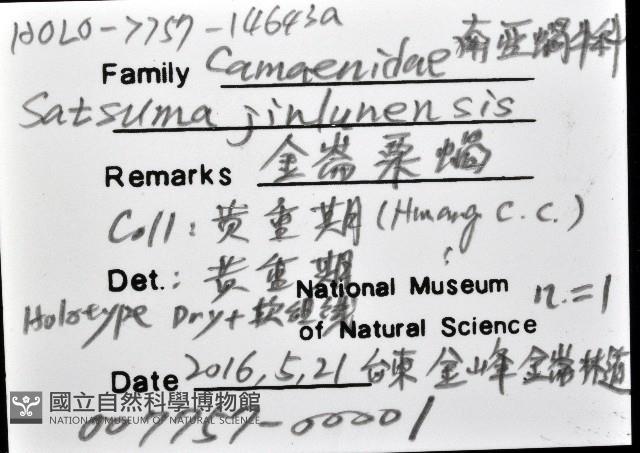 HOLO-7757-14643a
Family Camaenidae 南亞蝸牛科
Satsuma jinlunensis
Remarks 金崙栗蝸
Coll: 黃重期 (Hwang C. C.)
Det.: 黃重期
National Museum n.=1
Holotype Dry+軟組織
of Natural Science
Date 2016,5,21 台東 金峰 金崙林道
國立自然科學博物館
NATIONAL MUSEUM OF NATURAL SCIENCE
007757-00001